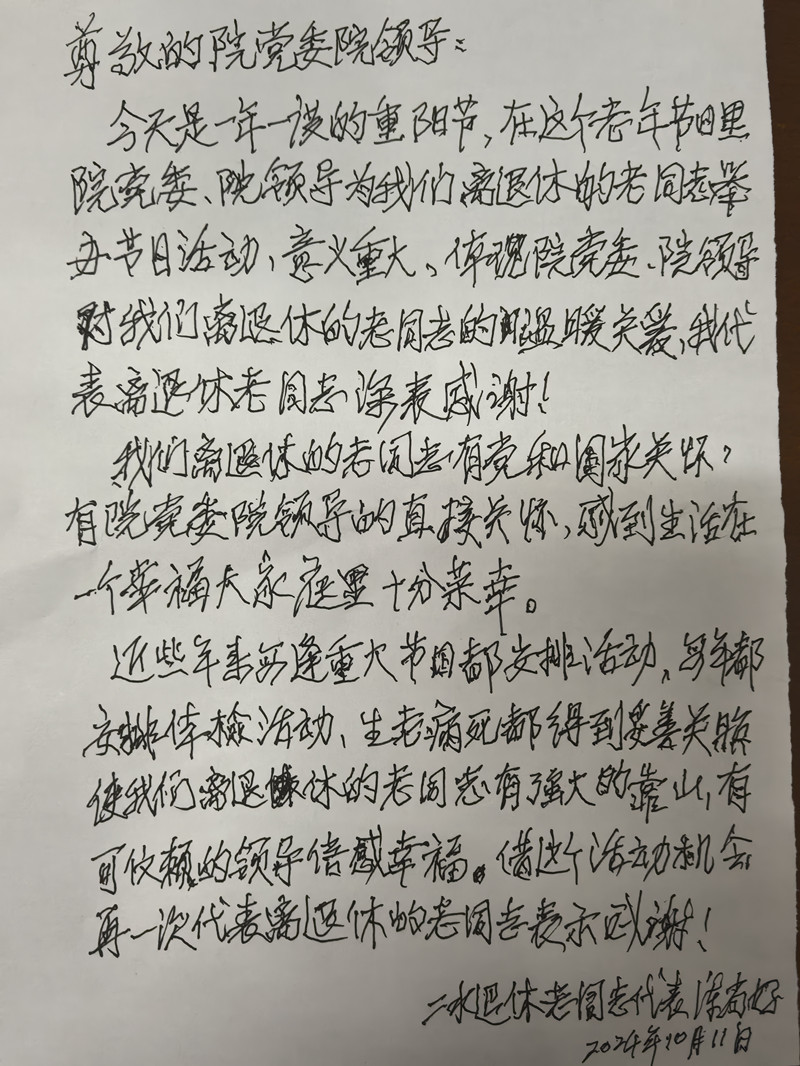 尊敬的院党委院领导：
今天是一年一度的重阳节，在这个老年节日里
院党委、院领导为我们离退休的老同志举
办节日活动、意义重大、体现院党委、院领导
对我们离退休的老同志的温暖关爱，我代
表离退休老同志深表感谢！
我们离退休的老同志有党和国家关怀，
有院党委院领导的直接关怀，感到生活在
一个幸福大家庭里十分荣幸。
近些年来每逢重大节日都安排活动、每年都
安排体检活动、生老病死都得到妥善关照
使我们离退休的老同志有强大的靠山，有
可依赖的领导倍感幸福。借这个活动机会
再一次代表离退休的老同志表示感谢！
二水退休老同志代表
2024年10月11日